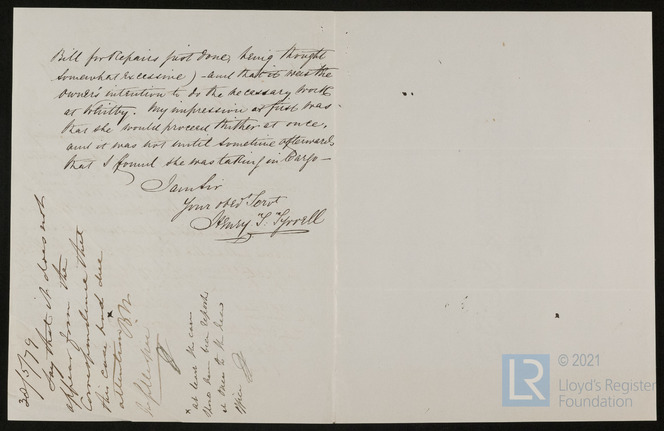 Bill for Repairs just done, being thought
somewhat excessive) - and that it was the
owner's intention to do the necessary work
at Whitby. My impression at first was
that she would proceed thither at once,
and it was not until sometime afterwards
that I found she was taking in Cargo -
I am Sir
Your obed.t Serv.t
Henry T. Tyrrell
20/5/79
Say that it does not
appear from the
correspondence that
this case had due
attention
x
x at least the case
should have been reported
to the
office
LR
© 2021
Lloyd's Register
Foundation